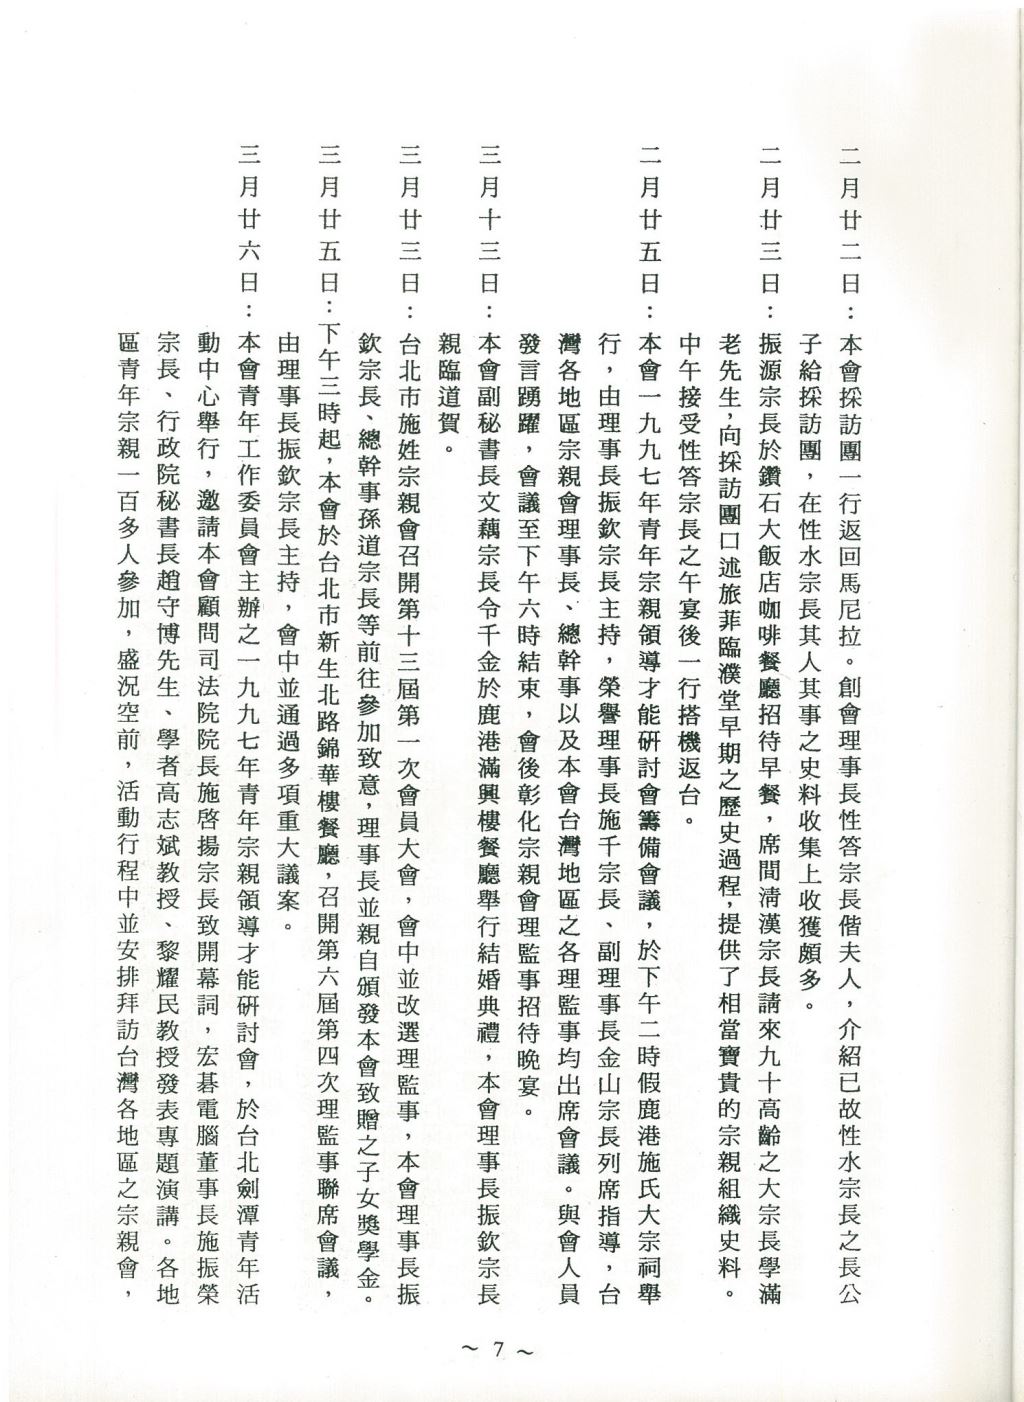 二月廿二日：本會採訪團一行返回馬尼拉。創會理事長性答宗長偕夫人，介紹已故性水宗長之長公
子給採訪團，在性水宗長其人其事之史料收集上收獲頗多。
二月廿三日：振源宗長於鑽石大飯店咖啡餐廳招待早餐，席間清漢宗長請來九十高齡之大宗長學滿
老先生，向採訪團口述旅菲臨濮堂早期之歷史過程，提供了相當寶貴的宗親組織史料。
中午接受性答宗長之午宴後一行搭機返台。
二月廿五日：本會一九九七年青年宗親領導才能研討會籌備會議，於下午二時假鹿港施氏大宗祠舉
行，由理事長振欽宗長主持，榮譽理事長施千宗長、副理事長金山宗長列席指導，台
灣各地區宗親會理事長、總幹事以及本會台灣地區之各理監事均出席會議。與會人員
發言踴躍，會議至下午六時結束，會後彰化宗親會理監事招待晚宴。
三月十三日：本會副秘書長文藕宗長令千金於鹿港滿興樓餐廳舉行結婚典禮，本會理事長振欽宗長
親臨道賀。
三月廿三日：台北市施姓宗親會召開第十三屆第一次會員大會，會中並改選理監事，本會理事長振
欽宗長、總幹事孫道宗長等前往參加致意，理事長並親自頒發本會致贈之子女獎學金。
三月廿五日：下午三時起，本會於台北市新生北路錦華樓餐廳，召開第六屆第四次理監事聯席會議，
由理事長振欽宗長主持，會中並通過多項重大議案。
三月廿六日：本會青年工作委員會主辦之一九九七年青年宗親領導才能研討會，於台北劍潭青年活
動中心舉行，邀請本會顧問司法院院長施啓揚宗長致開幕詞，宏碁電腦董事長施振榮
宗長、行政院秘書長趙守博先生、學者高志斌教授、黎耀民教授發表專題演講。各地
區青年宗親一百多人參加，盛況空前，活動行程中並安排拜訪台灣各地區之宗親會，
～7～